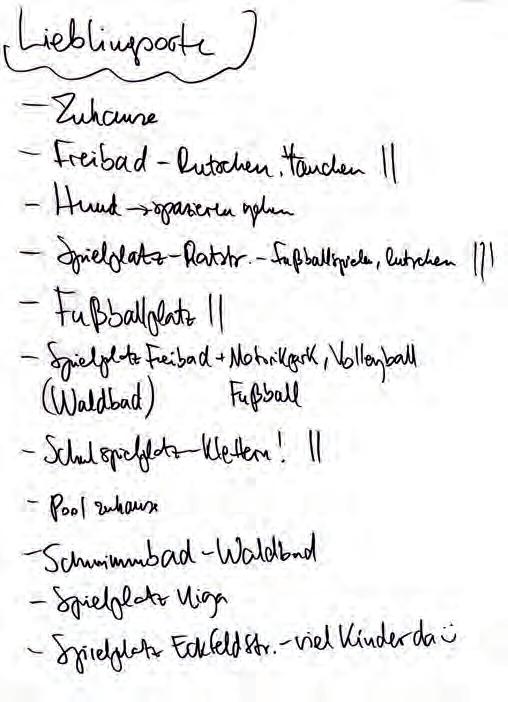 Lieblingsorte
- Zuhause
- Freibad - Rutschen, tauchen ||
- Hund → spazieren gehen
- Spielplatz - Ratstr. - Fußballspielen, rutschen |||
- Fußballplatz ||
- Spielplatz Freibad + Motorikpark, Volleyball
(Waldbad) Fußball
- Schulspielplatz - Klettern! ||
- Pool zuhause
- Schwimmbad - Waldbad
- Spielplatz
- Spielplatz Eckfeldstr. - viel Kinder da ☺